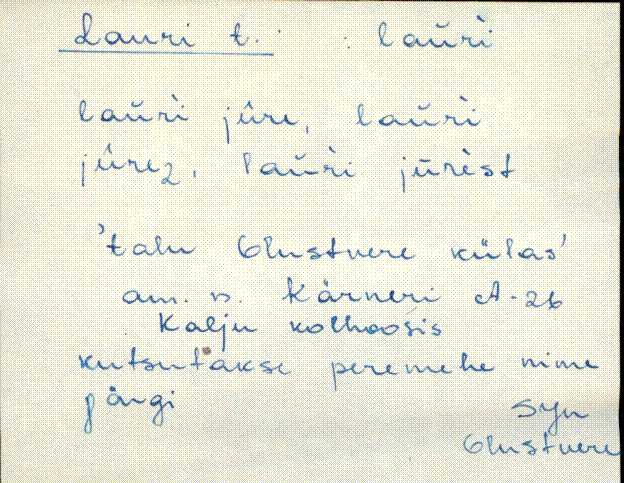 Lauri t. : laŭrì
laŭrì jûre, laŭrì
jûrez, laŭrì jūrìst
'talu Olustvere külas'
am. n. Kärneri A-26
Kalju kolhoosis
kutsutakse peremehe nime
järgi
SJn
Olustvere